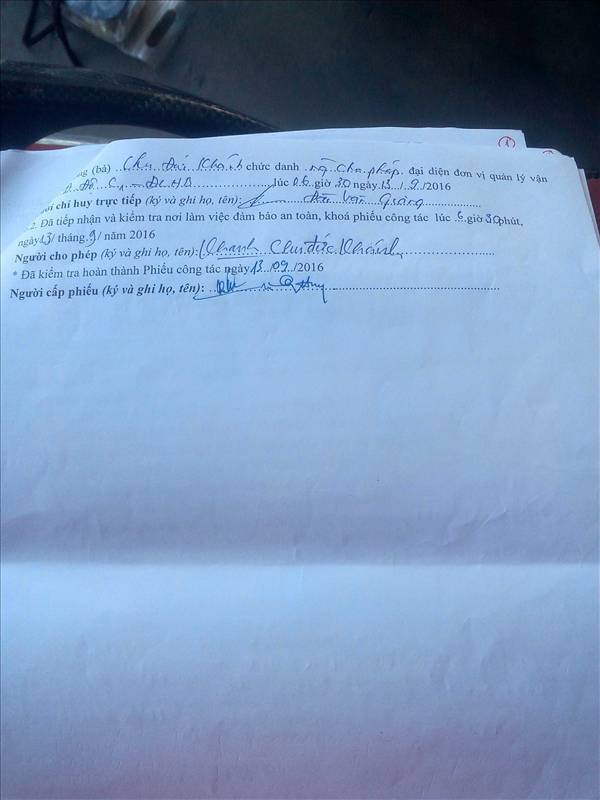 (bà) Chu Đức Khánh chức danh ng cho phép đại diện đơn vị quản lý vận
lúc 06 giờ 30 ngày 13 / 9 /2016
chỉ huy trực tiếp (ký và ghi họ, tên): Văn Giảng
2. Đã tiếp nhận và kiểm tra nơi làm việc đảm bảo an toàn, khoá phiếu công tác lúc 6 giờ 30 phút,
ngày 13/ tháng 9/ năm 2016
Người cho phép (ký và ghi họ, tên): Khanh Chu Đức Khánh
* Đã kiểm tra hoàn thành Phiếu công tác ngày 13 /09 /2016
Người cấp phiếu (ký và ghi họ, tên):
1